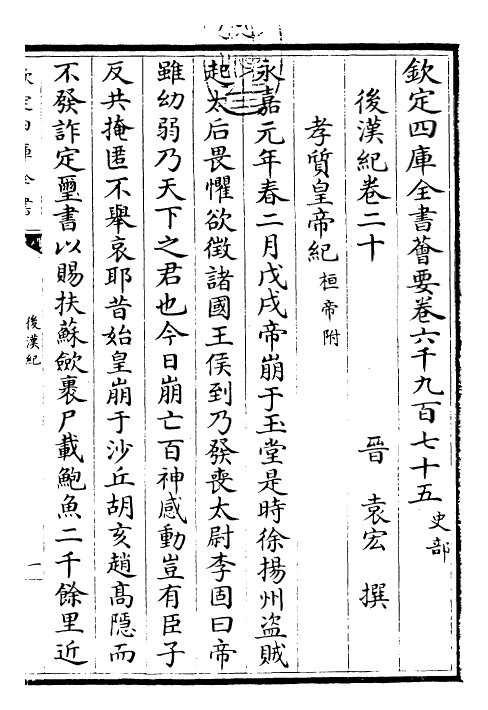 欽定四庫全書薈要卷六千九百七十五 史部
後漢紀卷二十 晉 袁宏 撰
孝質皇帝紀 桓帝附
永嘉元年春二月戊戌帝崩于玉堂是時徐揚州盜賊
起太后畏懼欲徵諸國王侯到乃發喪太尉李固曰帝
雖幼弱乃天下之君也今日崩亡百神感動豈有臣子
反共掩匿不舉哀耶昔始皇崩于沙丘胡亥趙高隱而
不發詐定璽書以賜扶蘇歛裹尸載鮑魚二千餘里近
欽定四庫全書
後漢紀
一